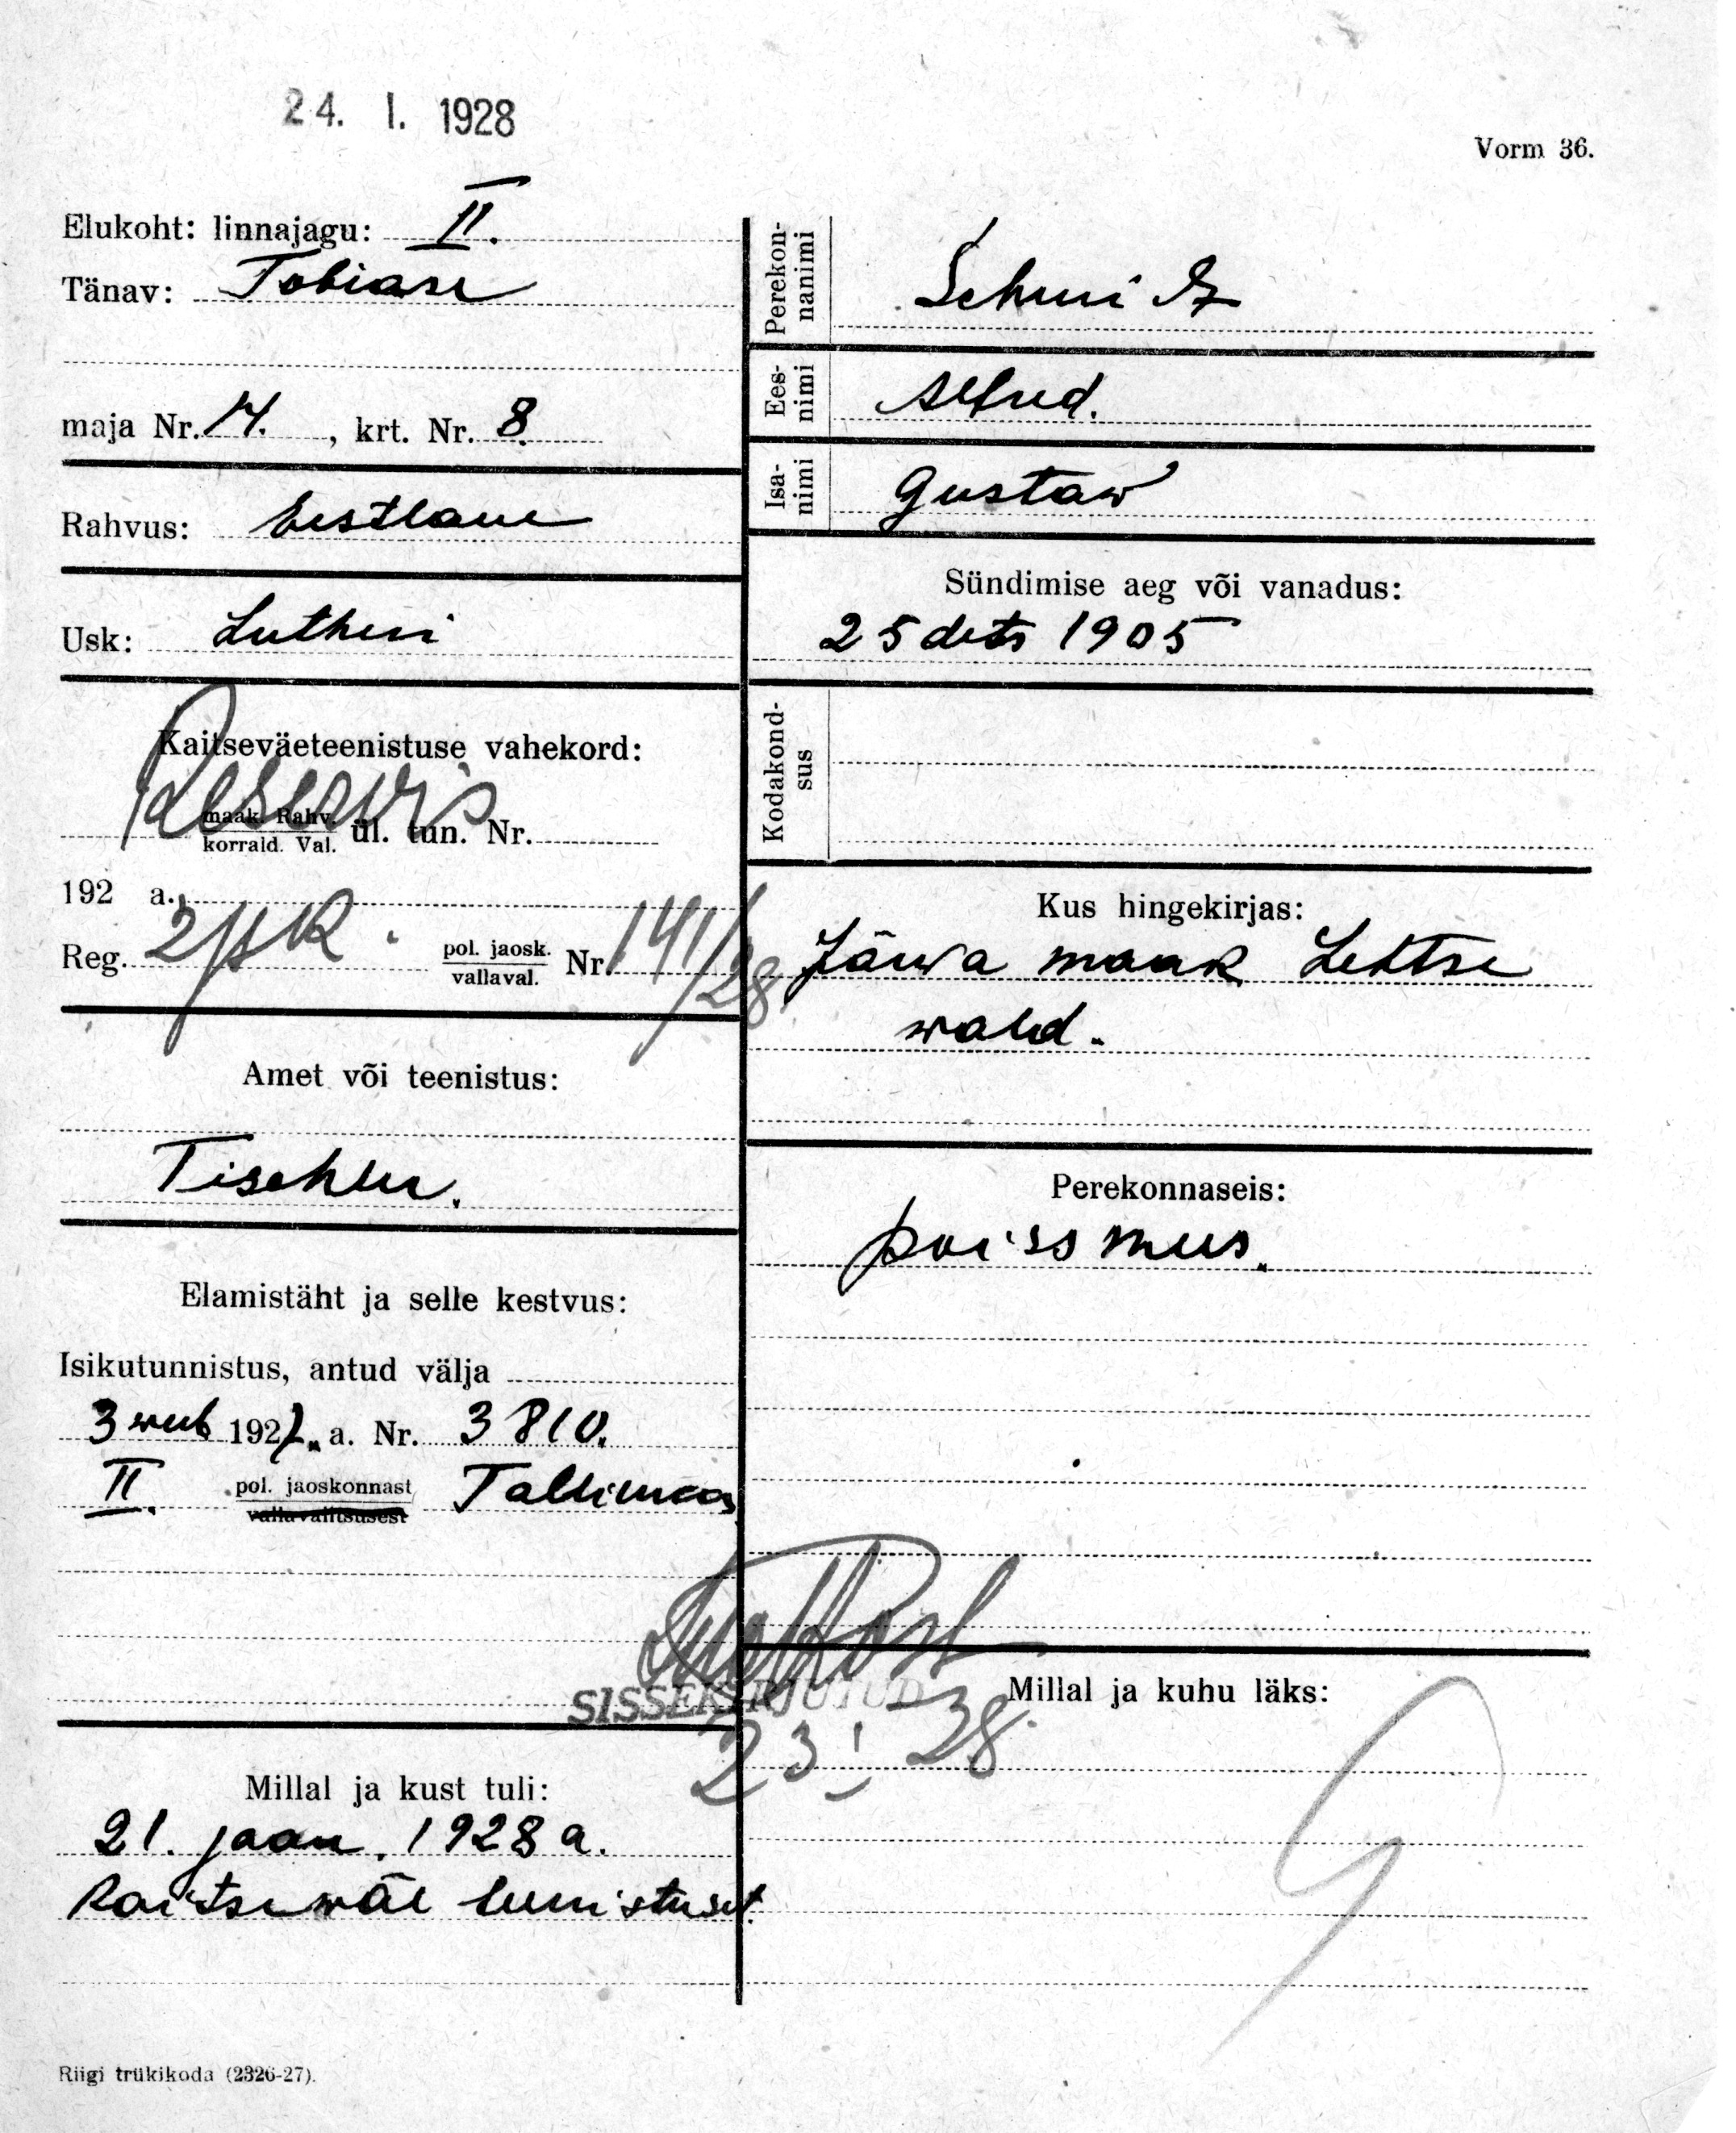 24. I. 1928
Vorm 36.
Elukoht: linnajagu: II.
Tänav: Tobiase
maja Nr. 14. , krt. Nr. 8.
Rahvus: Eestlane
Usk: Lutheri
Kaitseväeteenistuse vahekord:
Reservis
maak. Rahv.
korrald. Val. ül. tun. Nr.
192 a.
Reg. 2 jsk. pol. jaosk.
vallaval. Nr. 141/28
Amet või teenistus:
Tischler.
Elamistäht ja selle kestvus:
Isikutunnistus, antud välja
3 weeb 192 . a. Nr. 3810.
II. pol. jaoskonnast Tallinnas
vallavalitsusest
SISSEKIRJUTUD
23 I 28.
Millal ja kust tuli:
21. jaan. 1928 a.
kaitsewäe teenistuset.
Riigi trükikoda (2326-27).
Perekon-
nanimi
Schmidt
Ees-
nimi Alfred.
Isa-
nimi Gustaw
Sündimise aeg või vanadus:
25 dets 1905
Kodakond-
sus
Kus hingekirjas:
Järwa maak Lehtse
wald.
Perekonnaseis:
poissmees.
Millal ja kuhu läks: